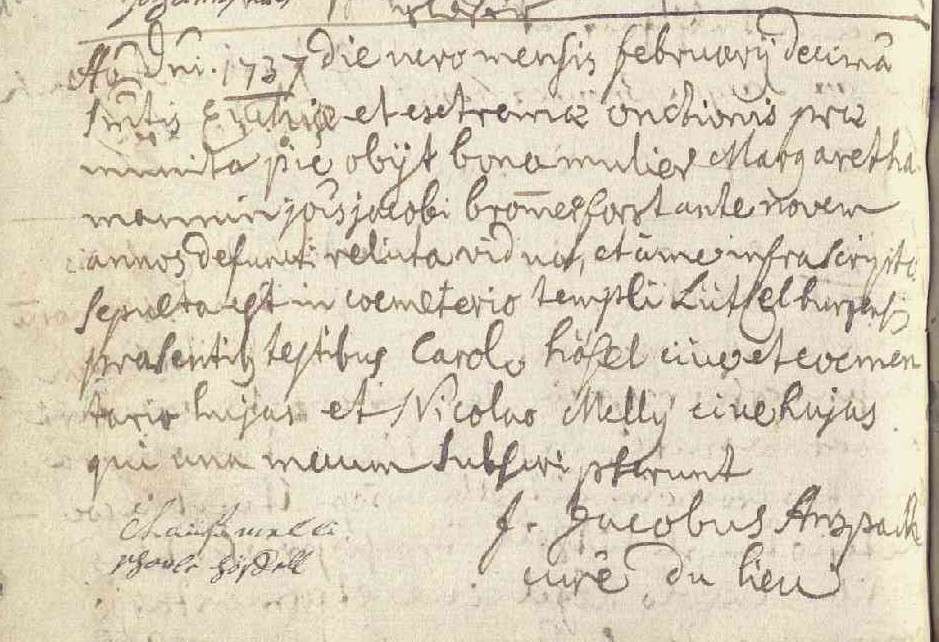 Año Dni. 1737 die vero mensis februarij decimâ
et extremæ unctionis præ
munita pie obijt bona mulier Margaretha
mannin jois jacobi bromesforst ante novem
annos defuncti relicta vidua, et a me infra scripto
sepulta est in coemeterio templi Lütselburgensis
præsentib testibus Carolo hösel cive et coemen
tario hujus et Nicolao Melly cive hujus
qui una mecum subscripserunt
J. Jacobus Anspach
curé du lieu